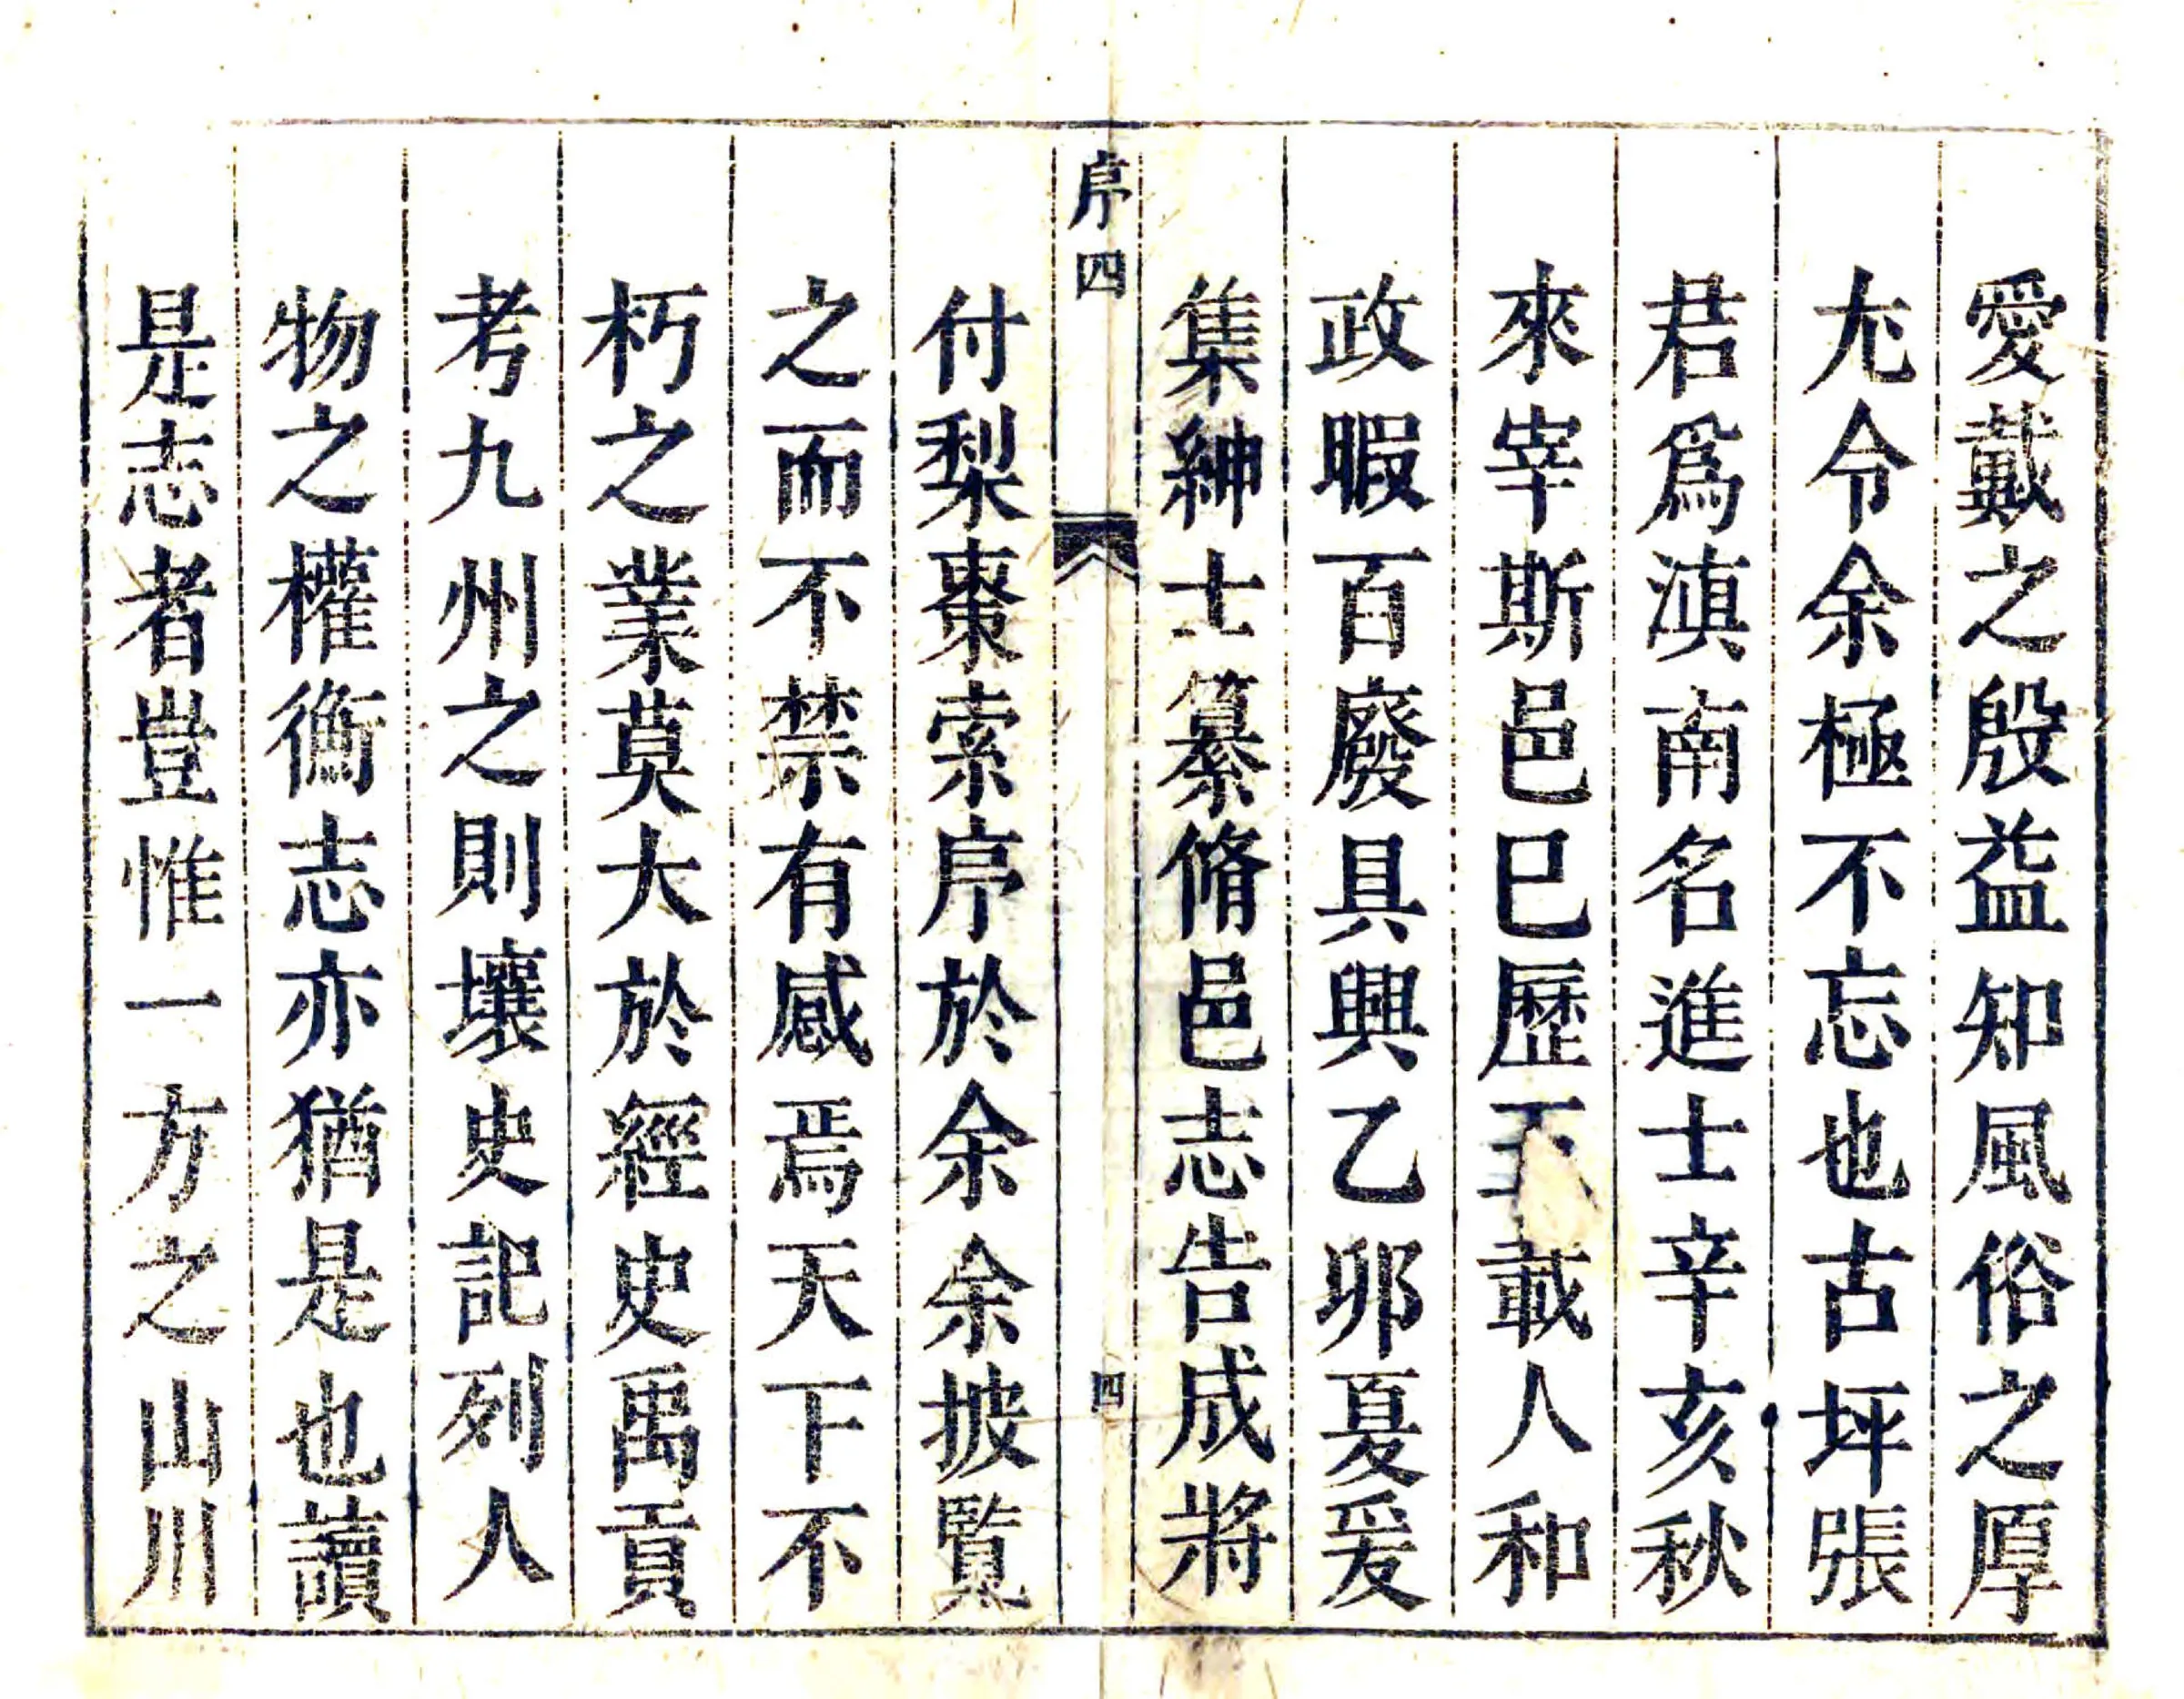 愛戴之殷益知風俗之厚
尤令余極不忘也古坪張
君爲滇南名進士辛亥秋
來宰斯邑巳歷載人和
政暇百廢具興乙卯夏爰
集紳士纂脩邑志告成將
序四
四
付梨棗索序於余余披覽
之而不禁有感焉天下不
朽之業莫大於經史禹貢
考九州之則壤史記列人
物之權衡志亦猶是也讀
是志者豈惟一方之山川